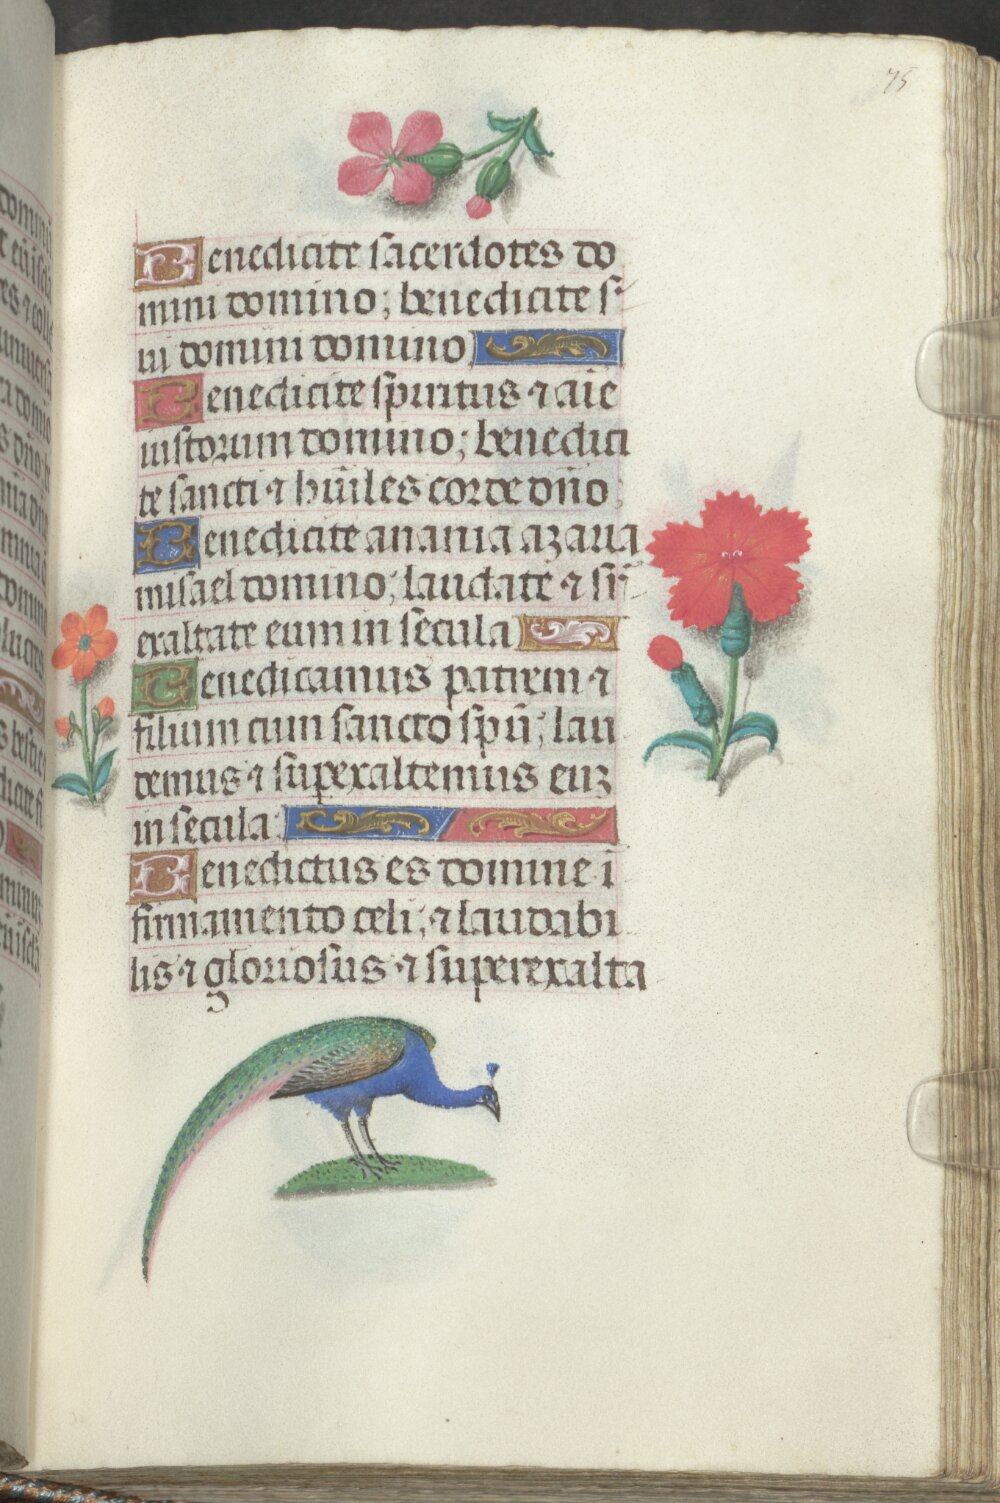 75
Benedicite sacerdotes do
mini domino; benedicite s̾
ui domini domino
Benedicite sp̄iritus ⁊ aīe
iustorum domino; benedici
te sancti ⁊ hūiles corde dn̄o
Benedicite anania azaria
misael domino; laudate ⁊ sup̄
exaltate eum in secula
Benedicamus patrem ⁊
filium cum sancto sp̄u; lau
demus ⁊ superexaltemus euꝫ
in secula;
Benedictus es domine ī
firmamento celi; ⁊ laudabi
lis ⁊ gloriosus ⁊ superexalta